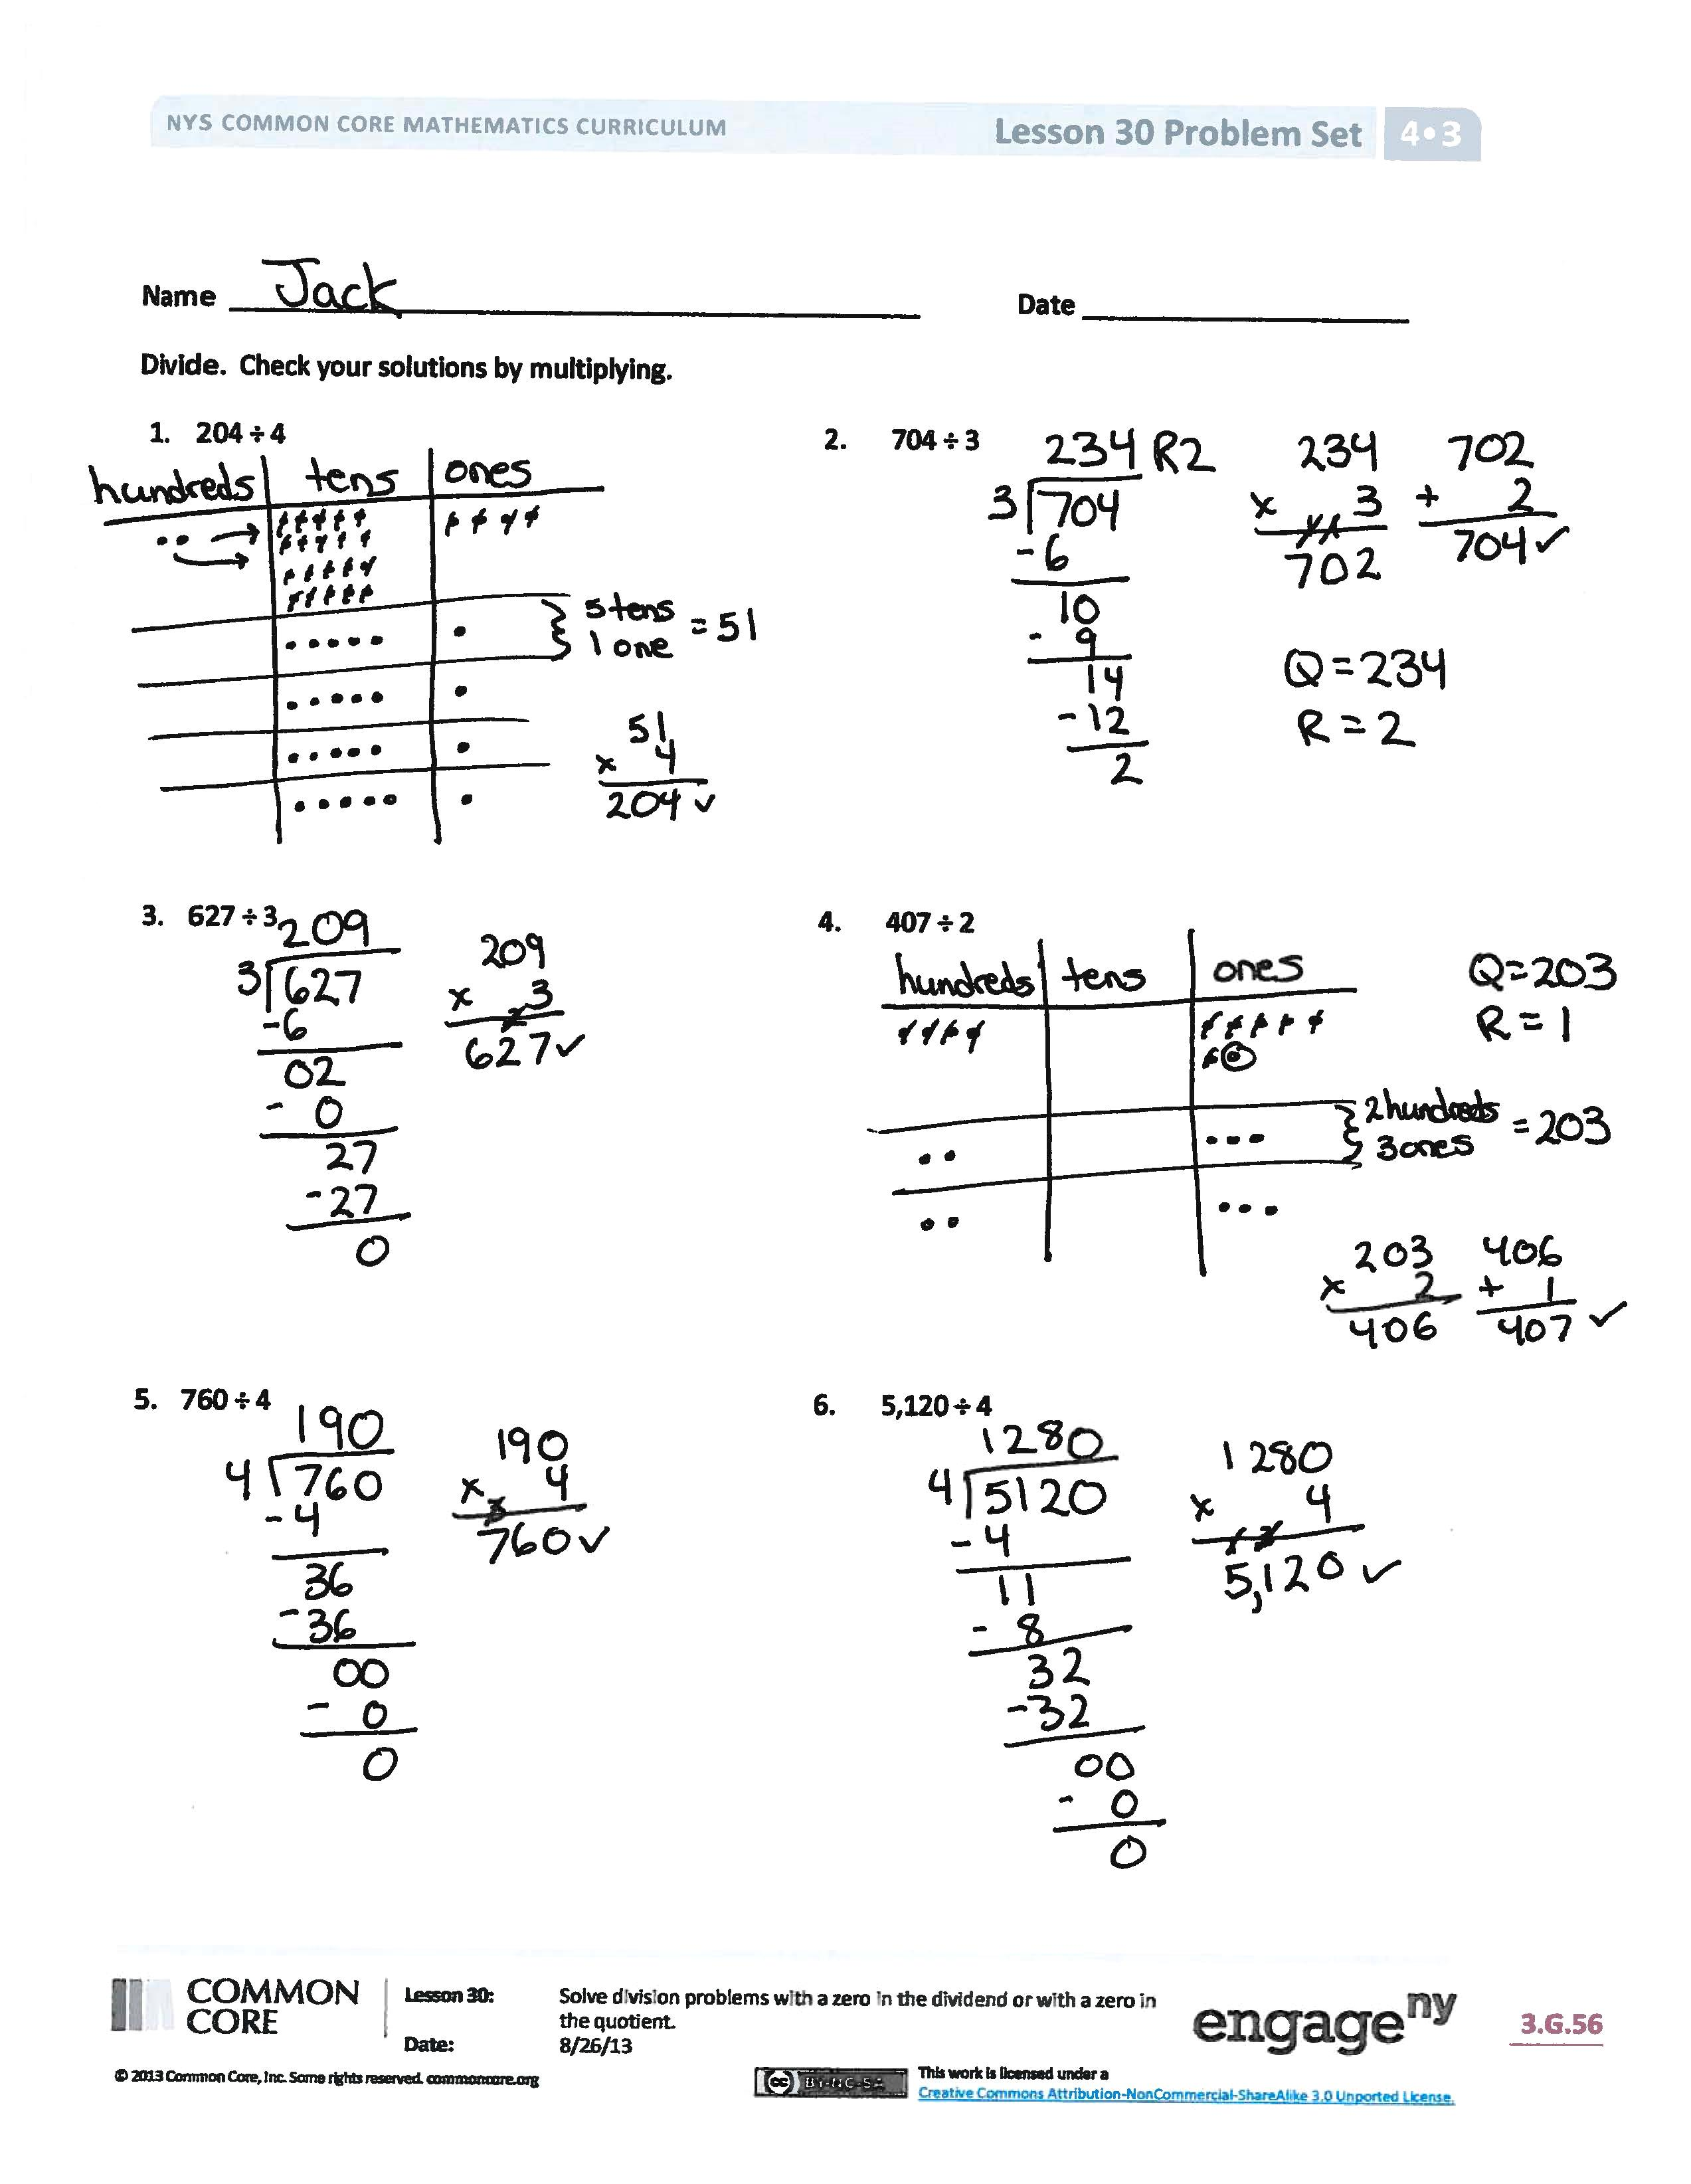 NYS COMMON CORE MATHEMATICS CURRICULUM
Lesson 30 Problem Set
4•3
Name Jack
Date
Divide. Check your solutions by multiplying.
1. 204 ÷ 4
hundreds tens ones
5 tens
1 one
= 51
51
x 4
204 ✓
2. 704 ÷ 3
234 R2
3 704
- 6
10
- 9
14
- 12
2
234
x 3
702
702
+ 2
704 ✓
Q = 234
R = 2
3. 627 ÷ 3
209
3 627
- 6
02
- 0
27
- 27
0
209
x 3
627 ✓
4. 407 ÷ 2
hundreds tens ones
Q = 203
R = 1
2 hundreds
3 ones
= 203
203
x 2
406
406
+ 1
407 ✓
5. 760 ÷ 4
190
4 760
- 4
36
- 36
00
- 0
0
190
x 4
760 ✓
6. 5,120 ÷ 4
1280
4 5120
- 4
11
- 8
32
- 32
00
- 0
0
1280
x 4
5,120 ✓
COMMON
CORE
Lesson 30:
Solve division problems with a zero in the dividend or with a zero in
the quotient.
Date:
8/26/13
engageny
3.G.56
© 2013 Common Core, Inc. Some rights reserved. commoncore.org
cc BY-NC-SA
This work is licensed under a
Creative Commons Attribution-NonCommercial-ShareAlike 3.0 Unported License.